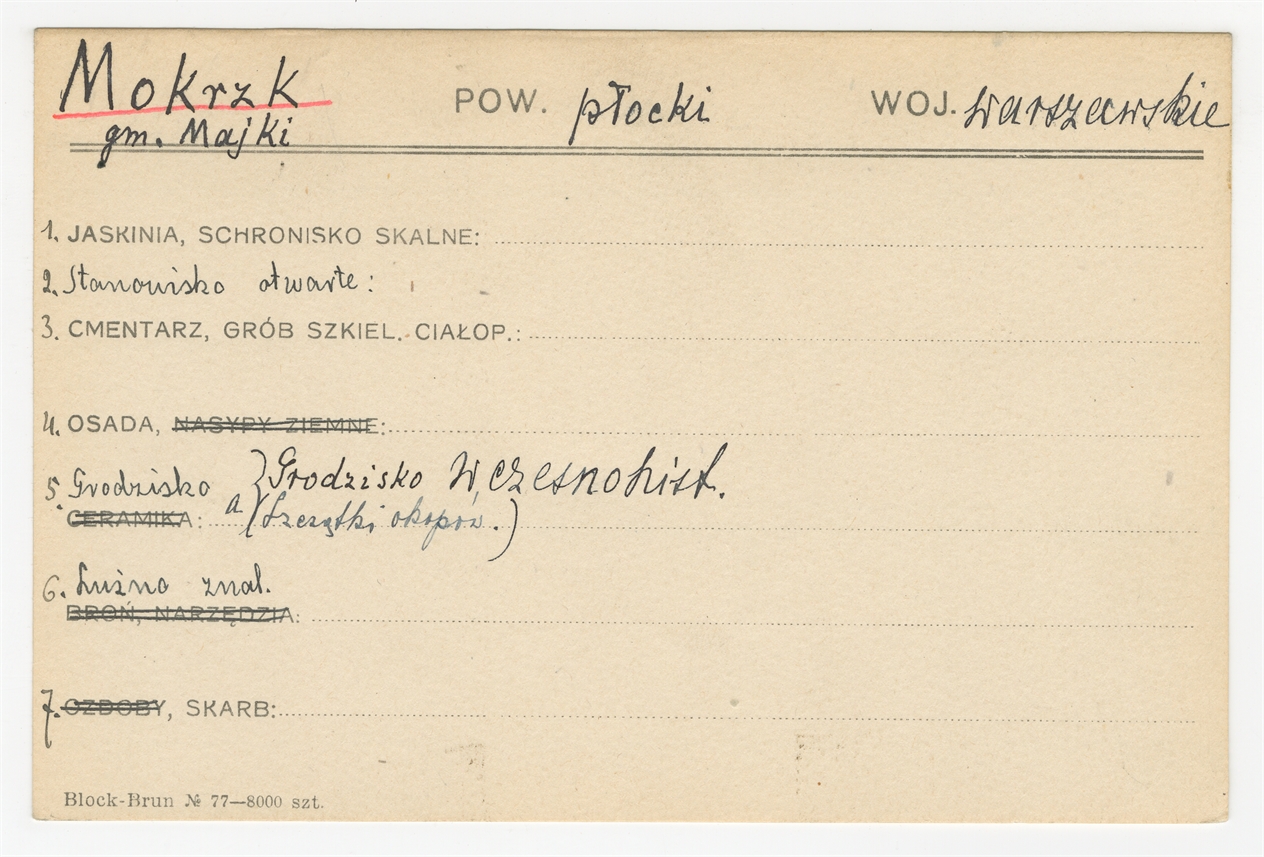 Mokrzk POW. płocki WOJ. warszawskie
gm. Majki
1. JASKINIA, SCHRONISKO SKALNE:
2. Stanowisko otwarte:
3. CMENTARZ, GRÓB SZKIEL. CIAŁOP.:
4. OSADA, NASYPY ZIEMNE:
5. Grodzisko } Grodzisko wczesnohist.
CERAMIKA: a (Szczątki okopów.)
6. Luźno znal.
BROŃ, NARZĘDZIA:
7. OZDOBY, SKARB:
Block-Brun № 77—8000 szt.